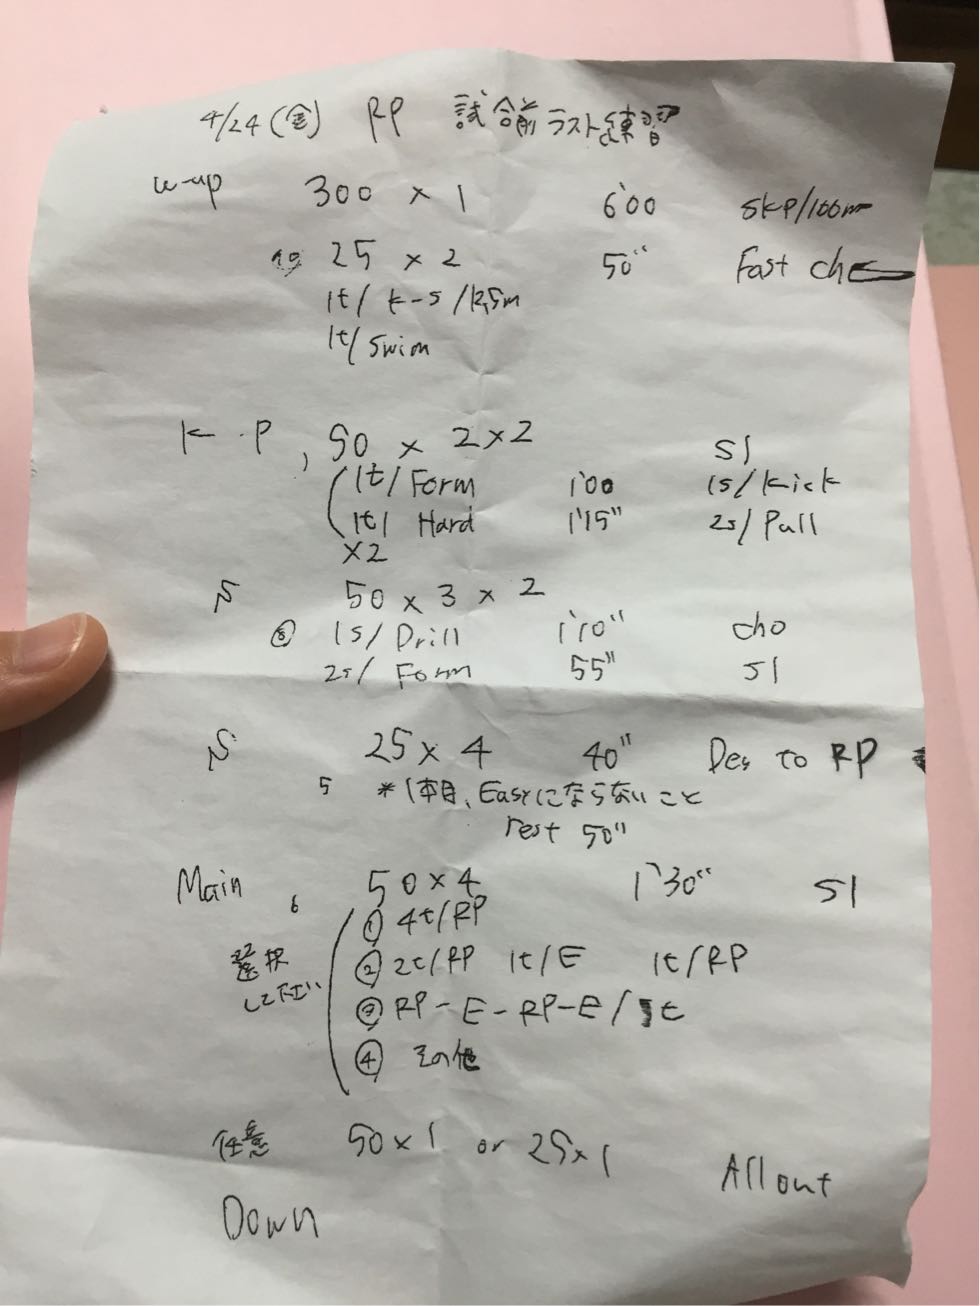 4/24(金) RP 試合前ラスト練習
w-up 300 × 1 6'00 SKP/100m
10 25 × 2 50" Fast cho
1t/ K-S/12.5m
1t/ Swim
K・P, 50 × 2×2 S1
1t/Form 1'00 1s/Kick
1t/ Hard 1'15" 2s/Pull
×2
S 50 × 3 × 2
⑧ 1s/Drill 1'10" cho
2s/ Form 55" S1
S 25 × 4 40" Des to RP
5 *1本目、Easyにならないこと
rest 50"
Main 6 50×4 1'30" S1
① 4t/RP
選択 ② 2t/RP 1t/E 1t/RP
して下さい ③ RP-E-RP-E/1t
④ その他
任意 50×1 or 25×1 All out
Down